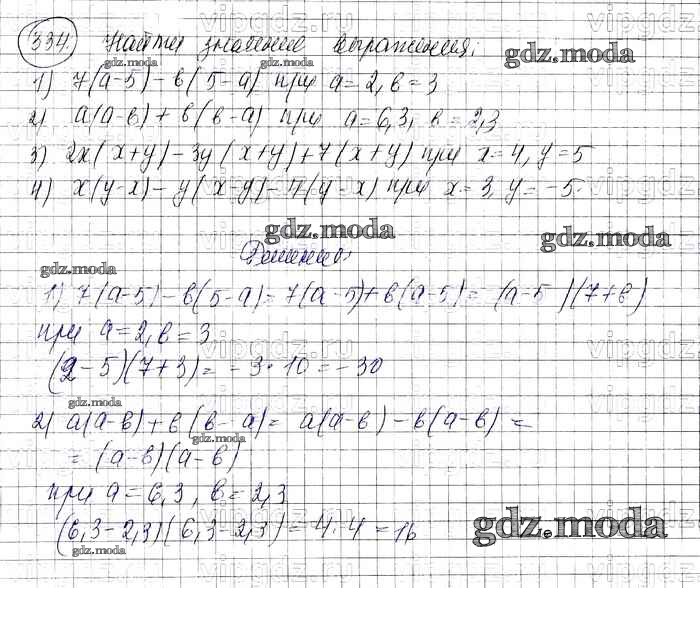 334. Найти значение выражения:
1) 7(a-5)-в(5-a) при a=2, в=3
2) a(a-в)+в(в-a) при a=6,3, в=2,3
3) 2x(x+y)-3y(x+y)+7(x+y) при x=4, y=5
4) x(y-x)-y(x-y)-7(y-x) при x=3, y=-5.
gdz.moda
Решение:
1) 7(a-5)-в(5-a)=7(a-5)+в(a-5)=(a-5)(7+в)
при a=2, в=3
(2-5)(7+3)=-3·10=-30
2) a(a-в)+в(в-a)=a(a-в)-в(a-в)=
=(a-в)(a-в)
при a=6,3, в=2,3
(6,3-2,3)(6,3-2,3)=4·4=16
gdz.moda
vipgdz.ru